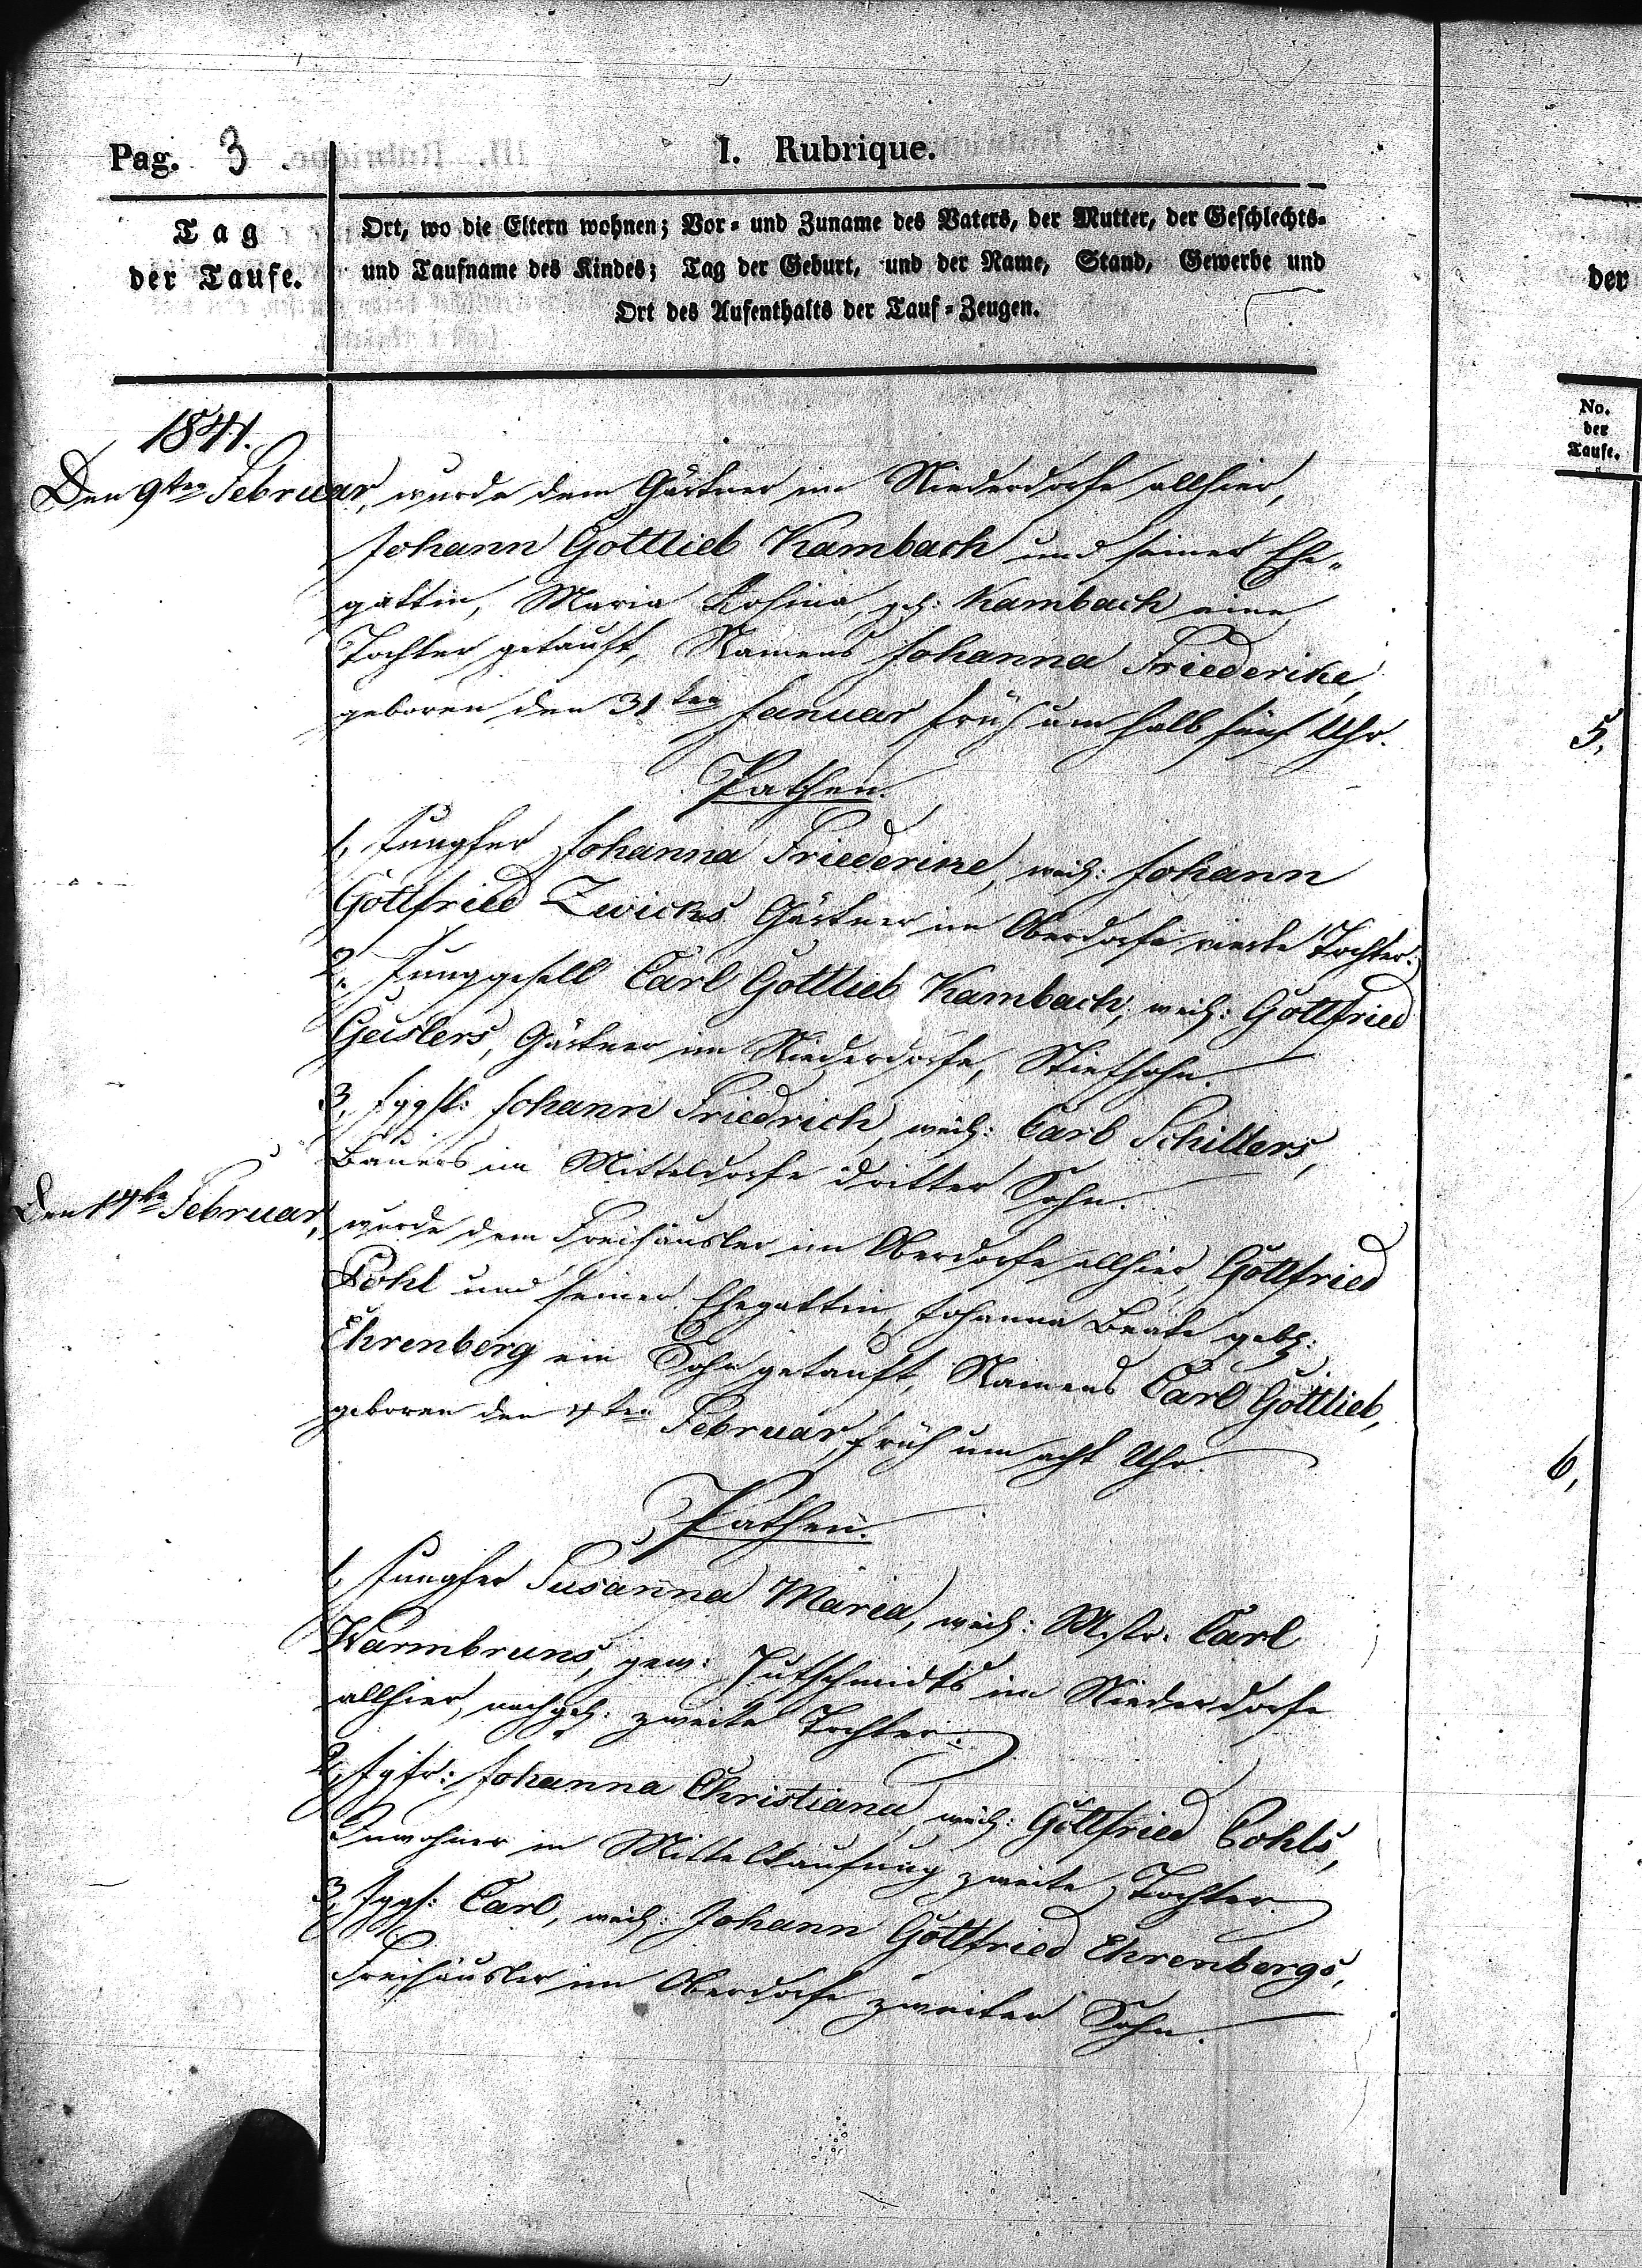 Pag. 3
I. Rubrique.
Tag
der Taufe.
Ort, wo die Eltern wohnen; Vor- und Zuname des Vaters, der Mutter, der Geschlechts-
und Taufname des Kindes; Tag der Geburt, und der Name, Stand, Gewerbe und
Ort des Aufenthalts der Tauf-Zeugen.
1841.
Den 9ten Februar, wurde dem Gärtner im Niederdorfe allhier,
Johann Gottlieb Kambach und seiner Ehe-
gattin, Maria Rosina, geb: Kambach eine
Tochter getauft, Namens Johanna Friederike,
geboren den 31ten Januar früh um halb fünf Uhr.
Pathen.
1, Jungfer Johanna Friederike, weil: Johann
Gottfried Zwicks Gärtner im Oberdorfe vierte Tochter.
2, Junggesell Carl Gottlieb Kambach, weil: Gottfried
Geislers, Gärtner im Niederdorfe, Stiefsohn.
3, Jggsl: Johann Friedrich, weil: Carl Schillers,
Bauers im Mitteldorfe dritter Sohn.
Den 14ten Februar, wurde dem Freihäusler im Oberdorfe allhier, Gottfried
Pohl und seiner Ehegattin, Johanna Beate geb:
Ehrenberg ein Sohn getauft, Namens Carl Gottlieb,
geboren den 4ten Februar, früh um acht Uhr.
Pathen.
1, Jungfer Susanna Maria, weil: Mstr. Carl
Warmbruns, gew: Hufschmidts im Niederdorfe
allhier, nachgel: zweite Tochter.
2, Jgfr: Johanna Christiana, weil: Gottfried Pohls,
Inwohner in Mittelkaufung zweite Tochter.
3, Jggs: Carl, weil: Johann Gottfried Ehrenbergs,
Freihäusler im Oberdorfe zweiter Sohn.
der
No.
der
Taufe.
5,
6,